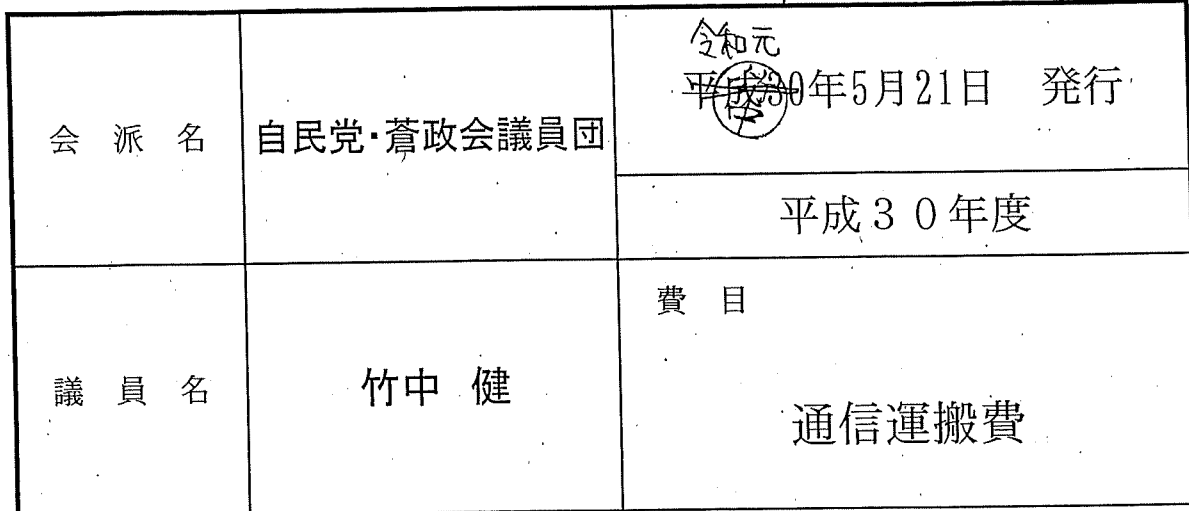 会派名
自民党・蒼政会議員団
令和元
平成30年5月21日 発行
平成30年度
議員名
竹中 健
費目
通信運搬費